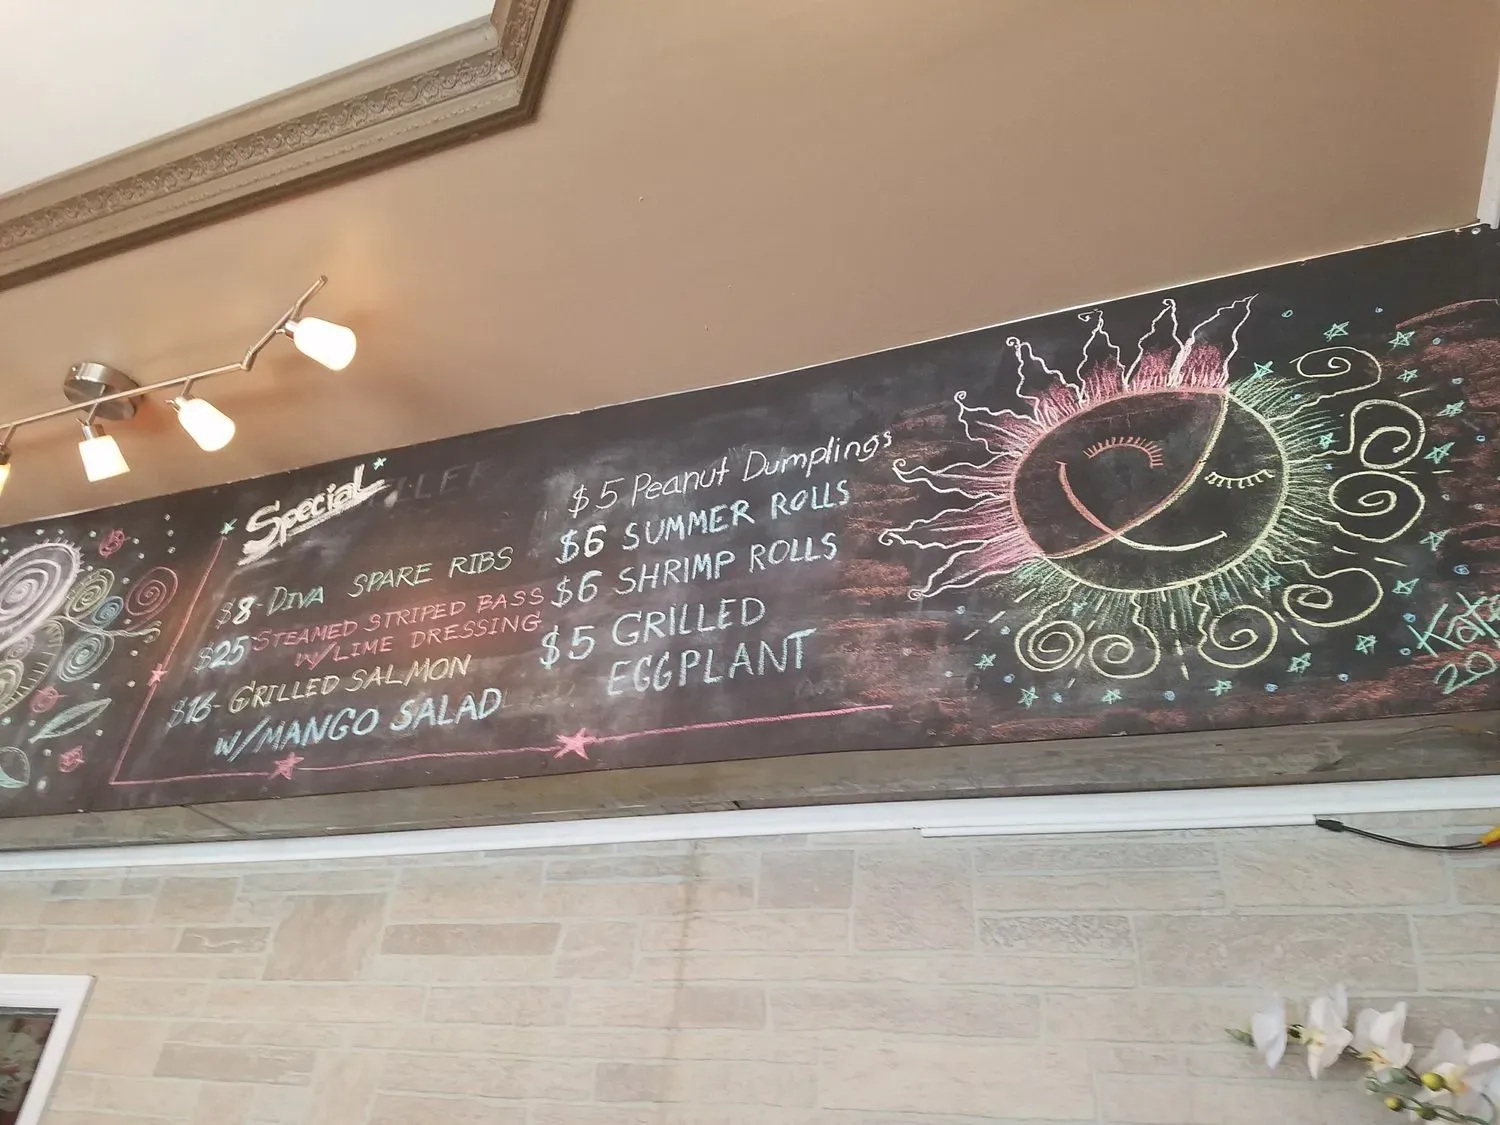 Special
$8-DIVA SPARE RIBS
$25 STEAMED STRIPED BASS
W/LIME DRESSING
$16-GRILLED SALMON
W/MANGO SALAD
$5 Peanut Dumplings
$6 SUMMER ROLLS
$6 SHRIMP ROLLS
$5 GRILLED
EGGPLANT